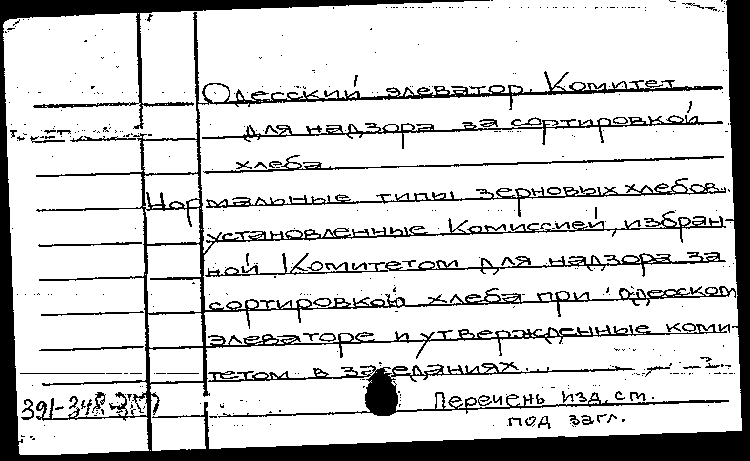 Одесский элеватор. Комитет
для надзора за сортировкой
хлеба.
Нормальные типы зерновых хлебов,
установленные Комиссией, избран-
ной Комитетом для надзора за
сортировкой хлеба при Одесском
элеваторе и утвержденные коми-
тетом в заседаниях...
391-348-
Перечень изд. см.
под загл.